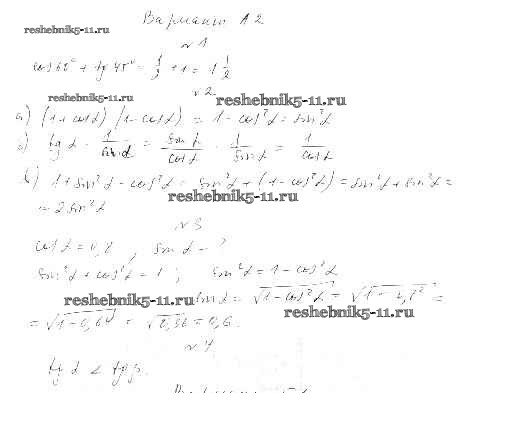 Вариант А2
reshebnik5-11.ru
№1
cos 60° + tg 45° = 1/2 + 1 = 1 1/2
reshebnik5-11.ru
№2
reshebnik5-11.ru
а) (1 + cos α)(1 - cos α) = 1 - cos²α = sin²α
б) tg α · 1/sin α = sin α/cos α · 1/sin α = 1/cos α
в) 1 + sin²α - cos²α = sin²α + (1 - cos²α) = sin²α + sin²α =
reshebnik5-11.ru
= 2 sin²α
№3
cos α = 0,8, sin α - ?
sin²α + cos²α = 1; sin²α = 1 - cos²α
reshebnik5-11.ru sin α = √1 - cos²α = √1 - 0,8² =
reshebnik5-11.ru
= √1 - 0,64 = √0,36 = 0,6.
№4
tg α < tg β.